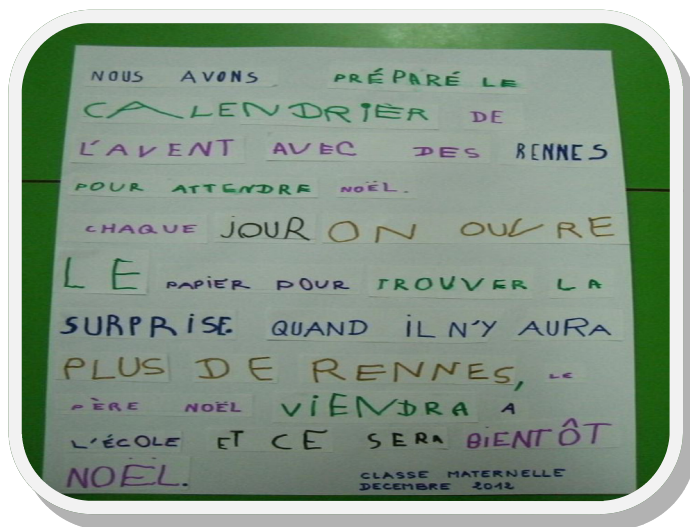 NOUS AVONS PRÉPARÉ LE
CALENDRIER DE
L'AVENT AVEC DES RENNES
POUR ATTENDRE NOËL.
CHAQUE JOUR ON OUVRE
LE PAPIER POUR TROUVER LA
SURPRISE. QUAND IL N'Y AURA
PLUS DE RENNES, LE
PÈRE NOËL VIENDRA A
L'ÉCOLE ET CE SERA BIENTÔT
NOËL.
CLASSE MATERNELLE
DECEMBRE 2012